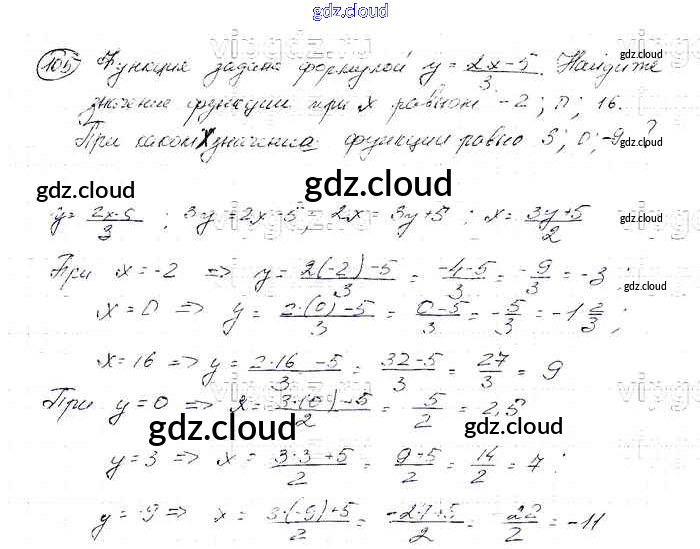 gdz.cloud
105 Функция задана формулой y = 2x-5/3. Найдите gdz.cloud
значение функции при x равном -2; 0; 16.
При каком x значение функции равно 3; 0; -9? gdz.cloud
gdz.cloud gdz.cloud
y = 2x-5/3 ; 3y = 2x-5; 2x = 3y+5 ; x = 3y+5/2 gdz.cloud
При x = -2 => y = 2(-2)-5/3 = -4-5/3 = -9/3 = -3 ; gdz.cloud
x = 0 => y = 2·(0)-5/3 = 0-5/3 = -5/3 = -1 2/3 ;
x = 16 => y = 2·16-5/3 = 32-5/3 = 27/3 = 9
При y = 0 => x = 3·(0)+5/2 = 5/2 = 2,5
gdz.cloud gdz.cloud
y = 3 => x = 3·3+5/2 = 9+5/2 = 14/2 = 7 ;
y = -9 => x = 3·(-9)+5/2 = -27+5/2 = -22/2 = -11